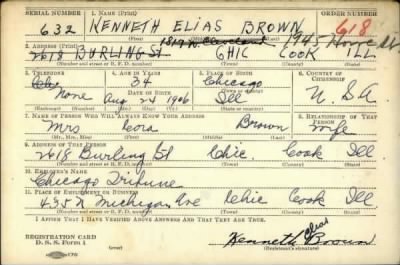 SERIAL NUMBER 1. NAME (Print) ORDER NUMBER
632 KENNETH ELIAS BROWN 618
(First) (Middle) (Last)
1819 N. Cleveland 1945 Howe St
2. ADDRESS (Print)
2618 BURLING St CHIC COOK ILL
(Number and street or R. F. D. number) (Town) (County) (State)
3. TELEPHONE 4. AGE IN YEARS 5. PLACE OF BIRTH 6. COUNTRY OF CITIZENSHIP
34 Chicago
None DATE OF BIRTH
Aug 24 1906 Ill U.S.A
(Exchange) (Number) (Mo.) (Day) (Yr.) (State or country)
7. NAME OF PERSON WHO WILL ALWAYS KNOW YOUR ADDRESS 8. RELATIONSHIP OF THAT PERSON
Mrs Cora Brown wife
(Mr., Mrs., Miss) (First) (Middle) (Last)
9. ADDRESS OF THAT PERSON
2618 Burling St Chic Cook Ill
(Number and street or R. F. D. number) (Town) (County) (State)
10. EMPLOYER'S NAME
Chicago Tribune
11. PLACE OF EMPLOYMENT OR BUSINESS
435 N Michigan Ave Chic Cook Ill
(Number and street or R. F. D. number) (Town) (County) (State)
I AFFIRM THAT I HAVE VERIFIED ABOVE ANSWERS AND THAT THEY ARE TRUE.
REGISTRATION CARD
D. S. S. Form 1
Kenneth Elias Brown
(Registrant's signature)